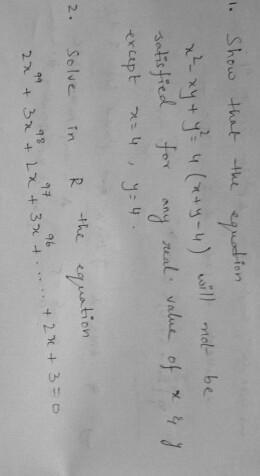 1. Show that the equation
x² - xy + y² = 4 (x+y-4) will not be
satisfied for any real value of x & y
except x=4, y=4.
2. Solve in R the equation
2x⁹⁹ + 3x⁹⁸ + 2x⁹⁷ + 3x⁹⁶ + ..... + 2x + 3 = 0